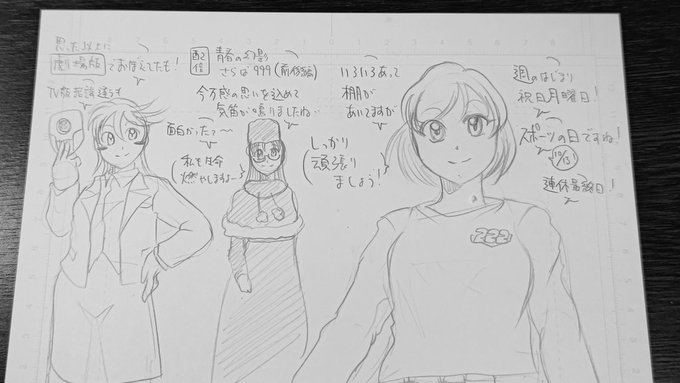 週のはじまり
祝日月曜日！
スポーツの日ですね！
10/13
連休最終日！
いろいろあって
棚が
あいてますが
しっかり
頑張り
ましょう！
配信
青春の幻影
さらば999(前後編)
今万感の思いを込めて
気笛が鳴りましたね…
面白かったて〜
私も生命
燃やしますよー
思った以上に
劇場版でおぼえてたも！
TV版
222